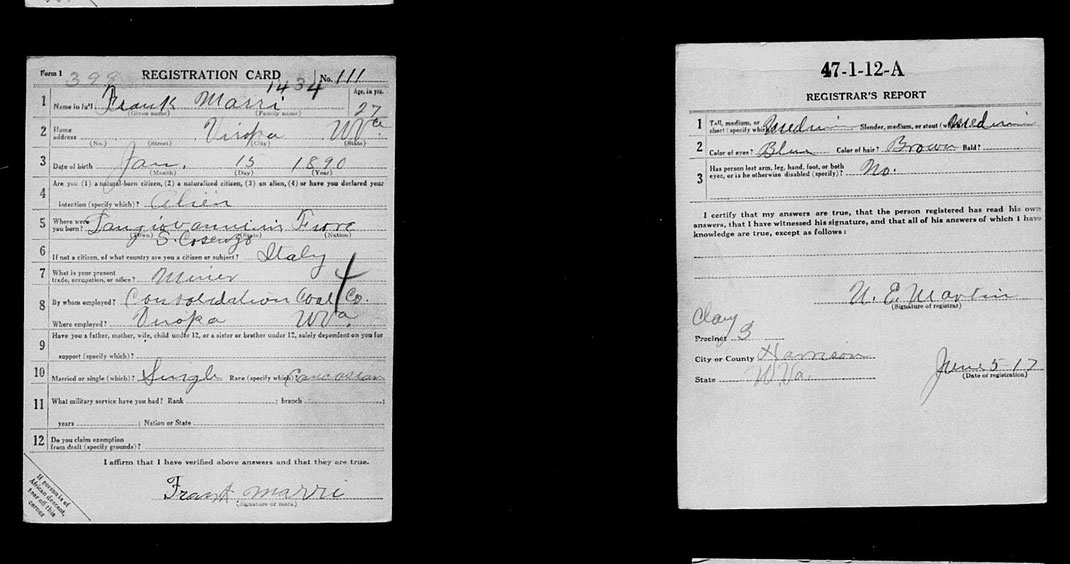 Form 1 398 REGISTRATION CARD No. 111
1434
1 Name in full Frank Marri Age, in yrs. 27
(Given name) (Family name)
2 Home address Viropa W Va.
(No.) (Street) (City) (State)
3 Date of birth Jan. 15 1890
(Month) (Day) (Year)
4 Are you (1) a natural-born citizen, (2) a naturalized citizen, (3) an alien, (4) or have you declared your
intention (specify which)? Alien
5 Where were you born? Fiore
(Town) (State) (Nation)
S. Cosenzo
6 If not a citizen, of what country are you a citizen or subject? Italy
7 What is your present trade, occupation, or office? Miner
8 By whom employed? Consolidation Coal Co.
Where employed? Viropa W Va.
9 Have you a father, mother, wife, child under 12, or a sister or brother under 12, solely dependent on you for
support (specify which)?
10 Married or single (which)? Single Race (specify which)? Caucasian
11 What military service have you had? Rank ; branch ;
years ; Nation or State
12 Do you claim exemption
from draft (specify grounds)?
I affirm that I have verified above answers and that they are true.
Frank Marri
(Signature or mark)
If person is of
African descent,
tear off this
corner
47-1-12-A
REGISTRAR'S REPORT
1 Tall, medium, or
short (specify which)? Medium Slender, medium, or stout (which)? Medium
2 Color of eyes? Blue Color of hair? Brown Bald?
3 Has person lost arm, leg, hand, foot, or both
eyes, or is he otherwise disabled (specify)? No.
I certify that my answers are true, that the person registered has read his own
answers, that I have witnessed his signature, and that all of his answers of which I have
knowledge are true, except as follows:
U. E. Martin
(Signature of registrar)
Clay
Precinct 3
City or County Harrison
State W. Va.
June 5 17
(Date of registration)